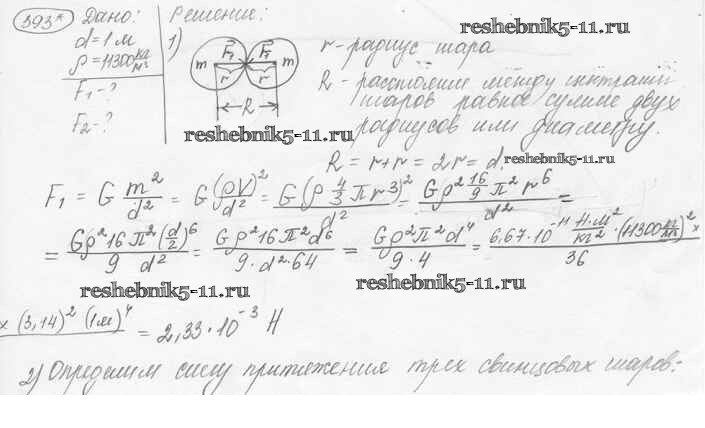 393* Дано: Решение:
reshebnik5-11.ru
d=1м 1)
ρ=11300 кг/м³
F₁-?
F₂-?
m F₁ F₁ m
r r
R
r - радиус шара
R - расстояние между центрами
шаров равное сумме двух
радиусов или диаметру.
reshebnik5-11.ru
R = r+r = 2r = d.
reshebnik5-11.ru
F₁ = G m²/d² = G (ρV)²/d² = G(ρ 4/3 π r³)²/d² = Gρ² 16/9 π² r⁶/d² =
= Gρ²16π²(d/2)⁶/9 d² = Gρ²16π²d⁶/9·d²·64 = Gρ²π²d⁴/9·4 = 6,67·10⁻¹¹ Н·м²/кг² · (11300 кг/м³)² ×/36
reshebnik5-11.ru
reshebnik5-11.ru
× (3,14)² (1м)⁴ = 2,33·10⁻³ Н
2) Определим силу притяжения трех свинцовых шаров: